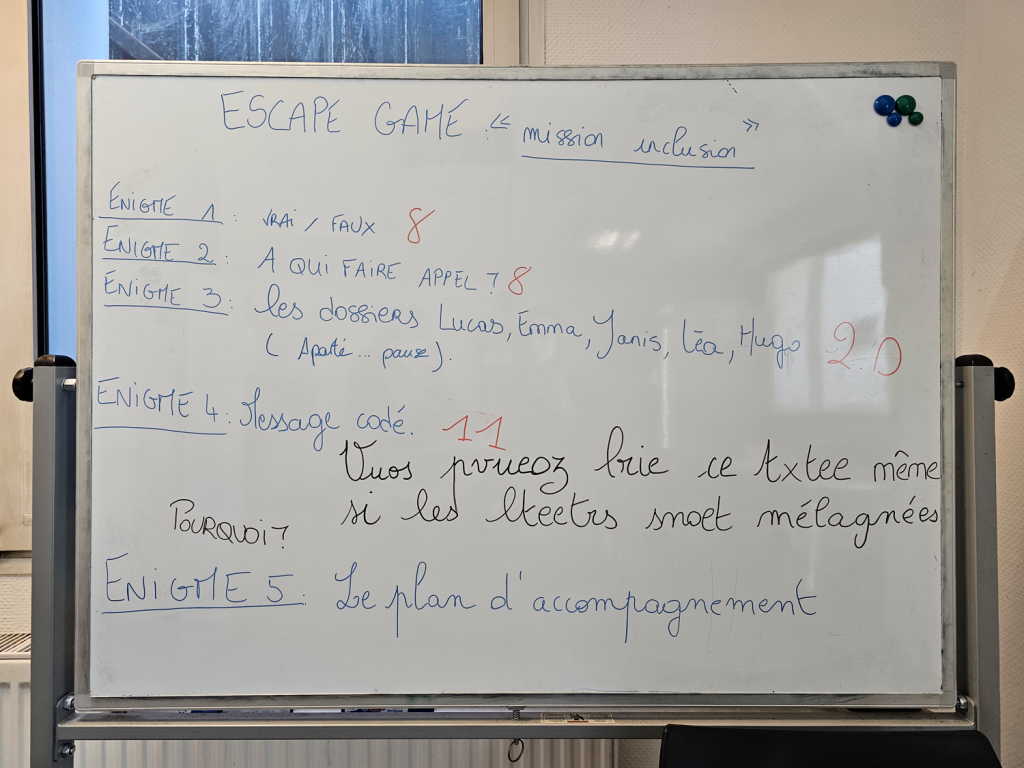 ESCAPE GAME : « mission inclusion »
ENIGME 1 : VRAI / FAUX 8
ENIGME 2 : A QUI FAIRE APPEL ? 8
ENIGME 3 : les dossiers Lucas, Emma, Yanis, Léa, Hugo 20
( Aparté ... pause ).
ENIGME 4 : Message codé. 11
Vuos pvrueoz lrie ce txtee même
si les lteetrs snoet mélagnées
POURQUOI ?
ENIGME 5 : Le plan d'accompagnement